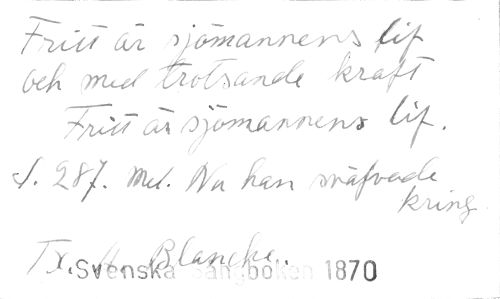 Fritt är sjömannens lif
och med trotsande kraft
Fritt är sjömannens lif.
S. 287. Mel. Nu han sväfvade
kring
Tx. A. Blanche.
Svenska Sångboken 1870